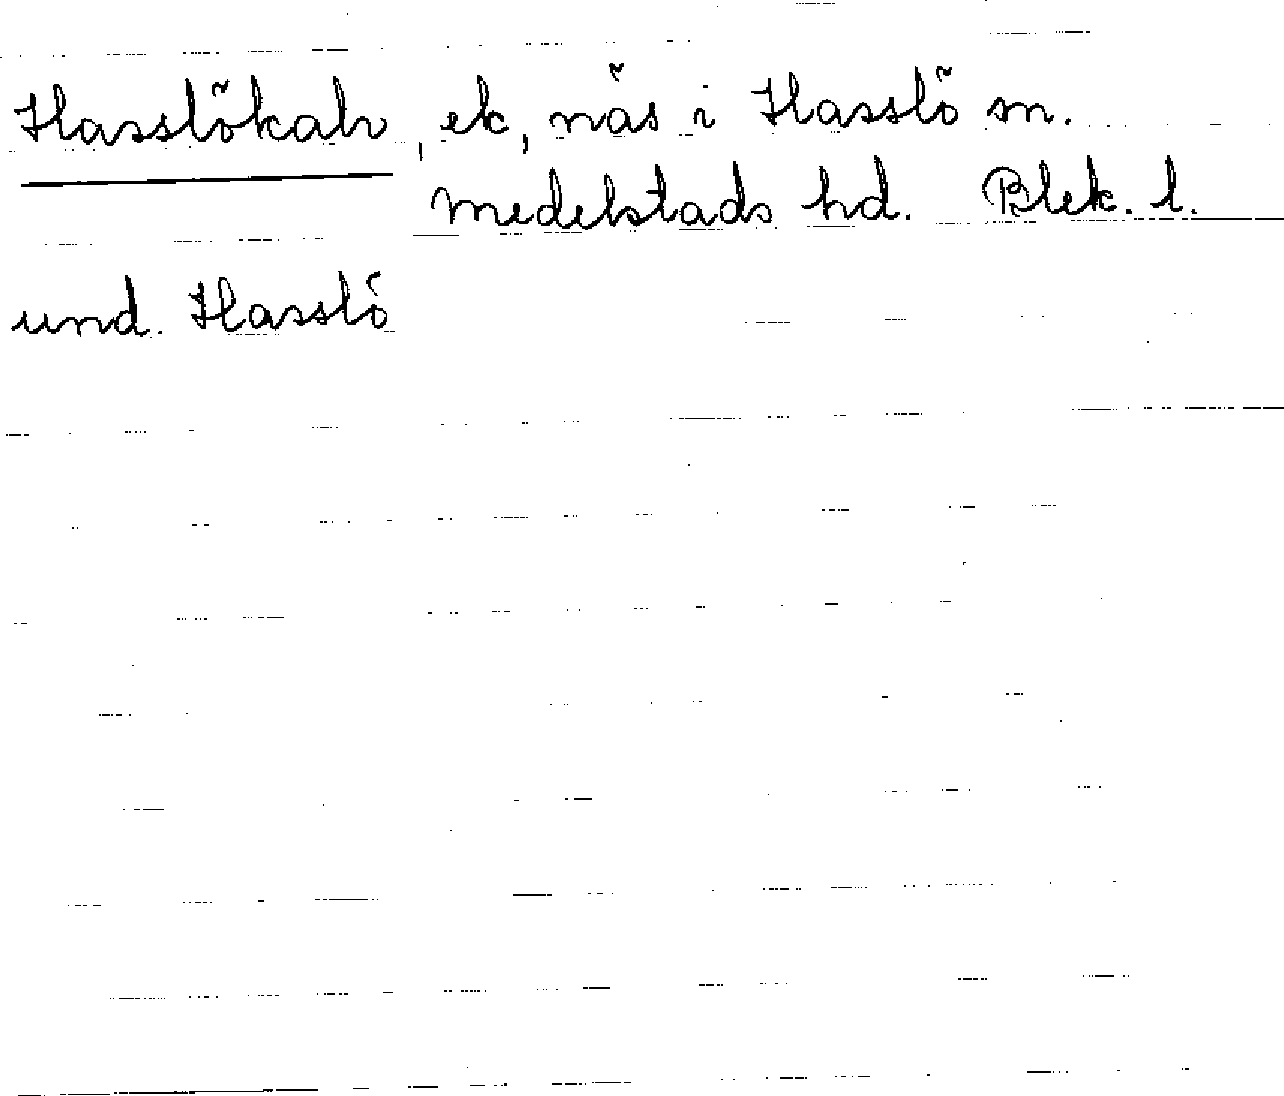 Hasslökalv, ek, näs i Hasslö sn.
Medelstads hd. Blek. l.
und. Hasslö